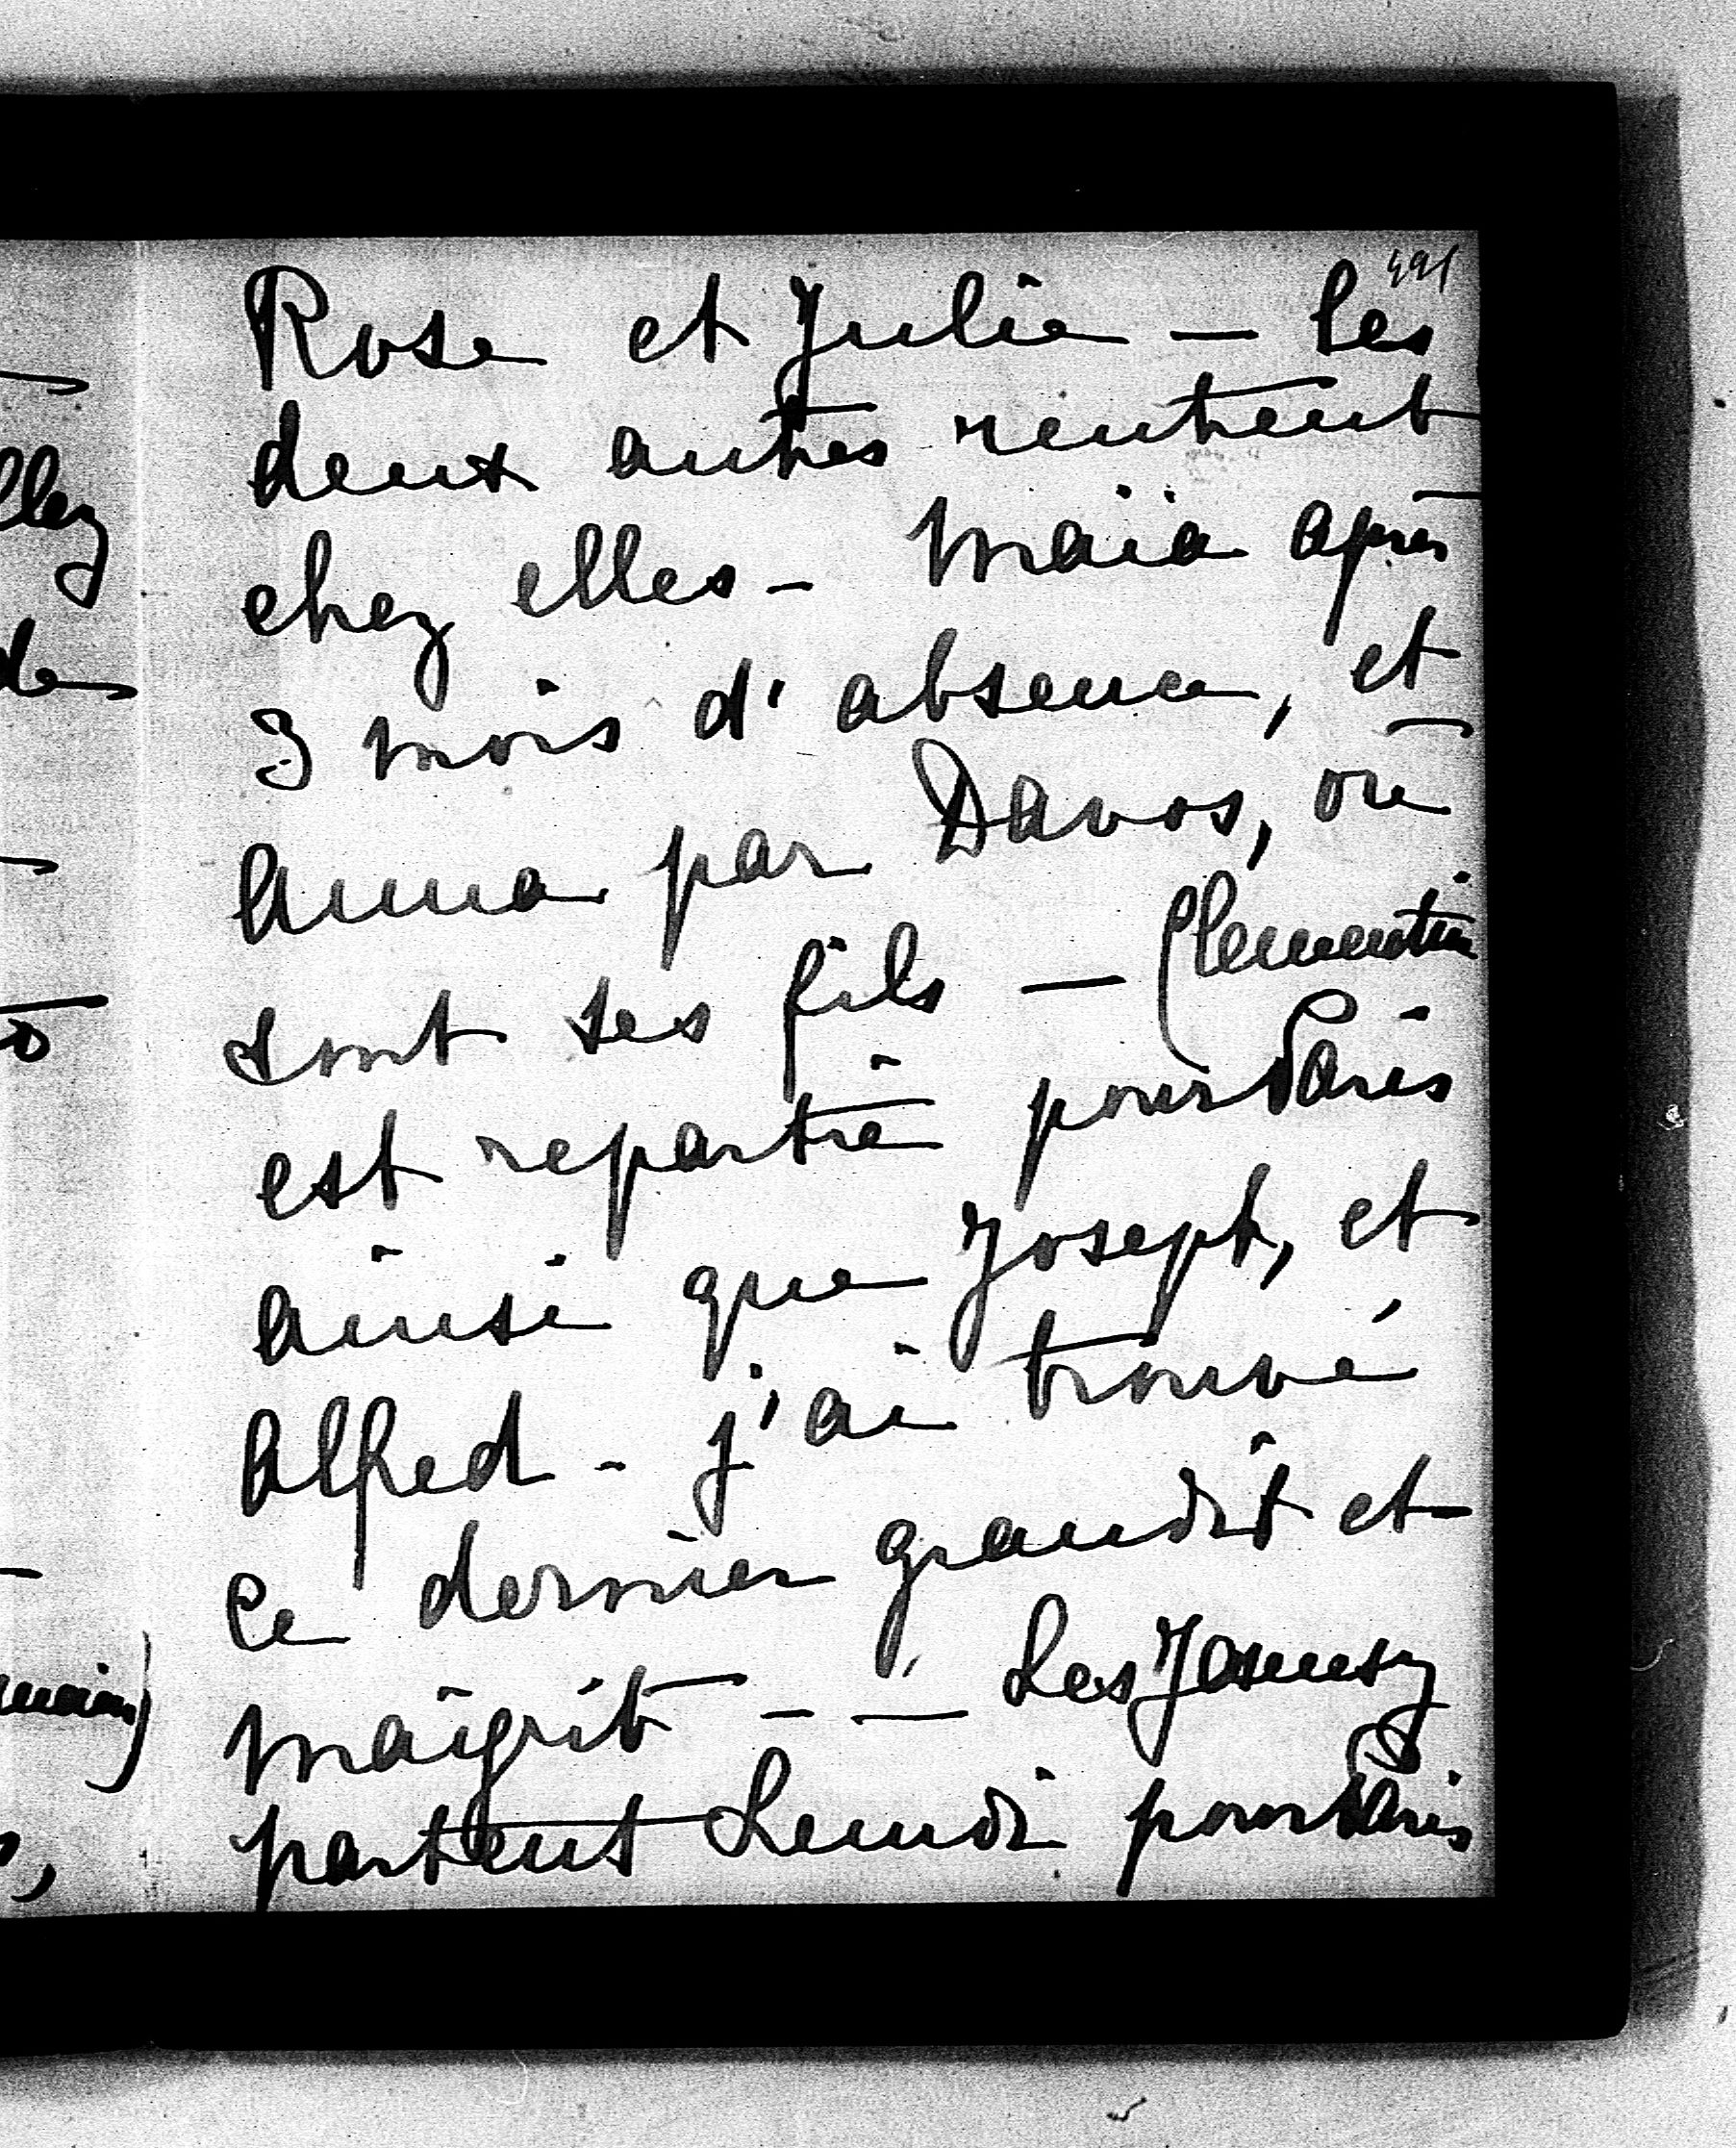 Rose et Julie — les
deux autres rentrent
chez elles - Maïa après
3 mois d'absence, et
Anna par Davos, où
sont ses fils — Clementine
est repartie pour Paris
ainsi que Joseph, et
Alfred - j'ai trouvé
ce dernier grandit et
maigrit - — Les
partent Lundi pour Paris